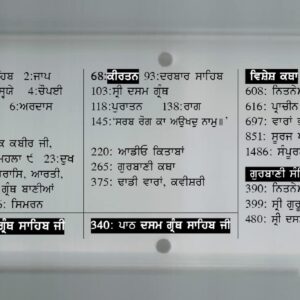 ਹਿਬ 2:ਜਾਪ
ਸ੍ਵਯੇ 4:ਚੌਪਈ
6:ਅਰਦਾਸ
ਕ ਕਬੀਰ ਜੀ,
ਮਹਲਾ ੯ 23:ਦੁਖ
ਰਾਸਿ, ਆਰਤੀ,
ਗ੍ਰੰਥ ਬਾਣੀਆਂ
6: ਸਿਮਰਨ
ਗ੍ਰੰਥ ਸਾਹਿਬ ਜੀ
68:ਕੀਰਤਨ 93:ਦਰਬਾਰ ਸਾਹਿਬ
103:ਸ੍ਰੀ ਦਸਮ ਗ੍ਰੰਥ
118:ਪੁਰਾਤਨ 138:ਰਾਗ
145:'ਸਰਬ ਰੋਗ ਕਾ ਅਉਖਦੁ ਨਾਮੁ॥'
220: ਆਡੀਓ ਕਿਤਾਬਾਂ
265: ਗੁਰਬਾਣੀ ਕਥਾ
375: ਢਾਡੀ ਵਾਰਾਂ, ਕਵੀਸ਼ਰੀ
340: ਪਾਠ ਦਸਮ ਗ੍ਰੰਥ ਸਾਹਿਬ ਜੀ
ਵਿਸ਼ੇਸ਼ ਕਥਾ
608: ਨਿਤਨੇ
616: ਪ੍ਰਾਚੀਨ
697: ਵਾਰਾਂ
851: ਸੂਰਜ
1486: ਸੰਪੂਰ
ਗੁਰਬਾਣੀ ਸੰ
390: ਨਿਤਨੇ
399: ਸ੍ਰੀ ਗੁਰੂ
480: ਸ੍ਰੀ ਦਸ